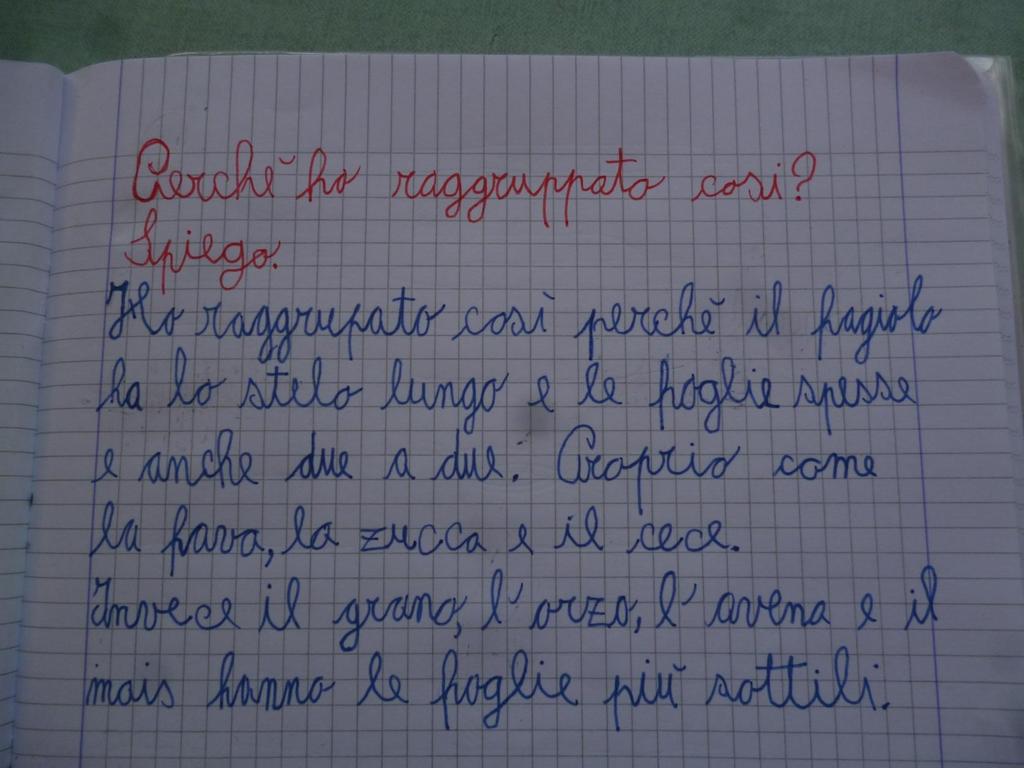 Perchĕ ho raggruppato cosi?
Spiego.
Ho raggrupato così perchĕ il fagiolo
ha lo stelo lungo e le foglie spesse
e anche due a due. Proprio come
la fava, la zucca e il cece.
Invece il grano, l'orzo, l'avena e il
mais hanno le foglie più sottili.